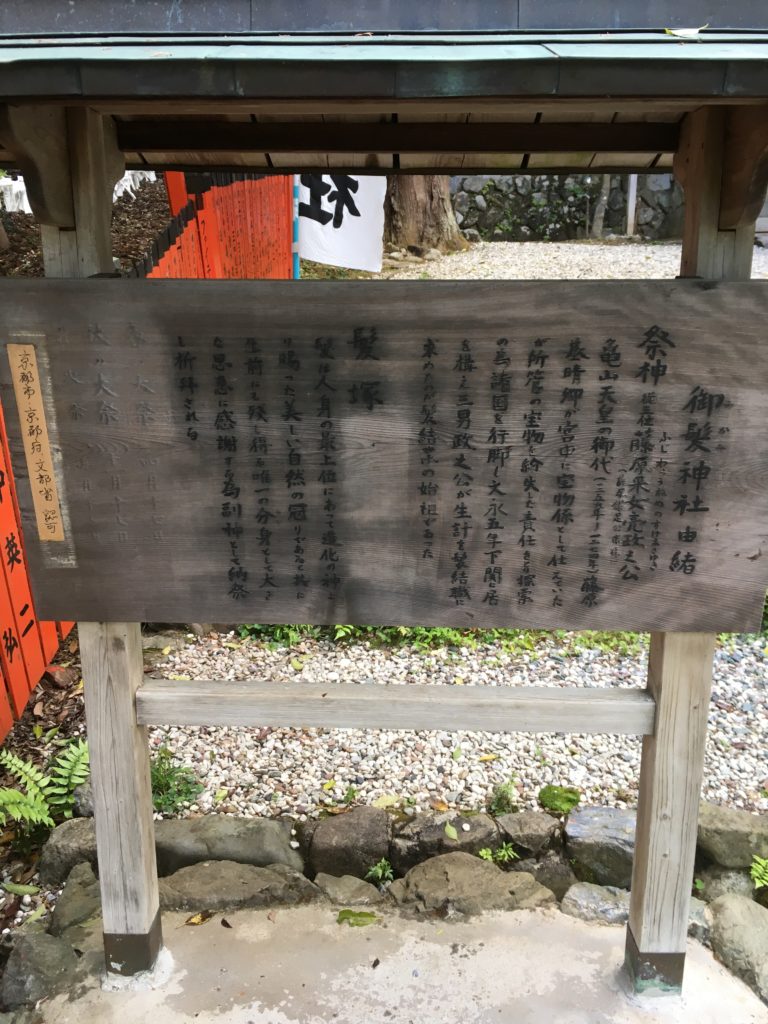 御髪神社由緒
みかみ
祭神 従五位 藤原采女亮政之公
ふじわらうねめのすけまさゆき
亀山天皇の御代(一二五九年~一二七四年)藤原
基晴卿が宮中に宝物係として仕えていた
が所管の宝物を紛失した責任をとり探索
の為諸国を行脚し文永五年下関に居
を構え三男政之公が生計を髪結職に
求めたのが髪結業の始祖であった
髪塚
髪は人身の最上位にあって造化の神よ
り賜った美しい自然の冠りであると共に
生前にも残し得る唯一の分身として大き
な恩恵に感謝する為副神として納祭
し祈拝される
大祭
大祭 月十七日
京都市・京都府・文部省 認可
社
英二
弘